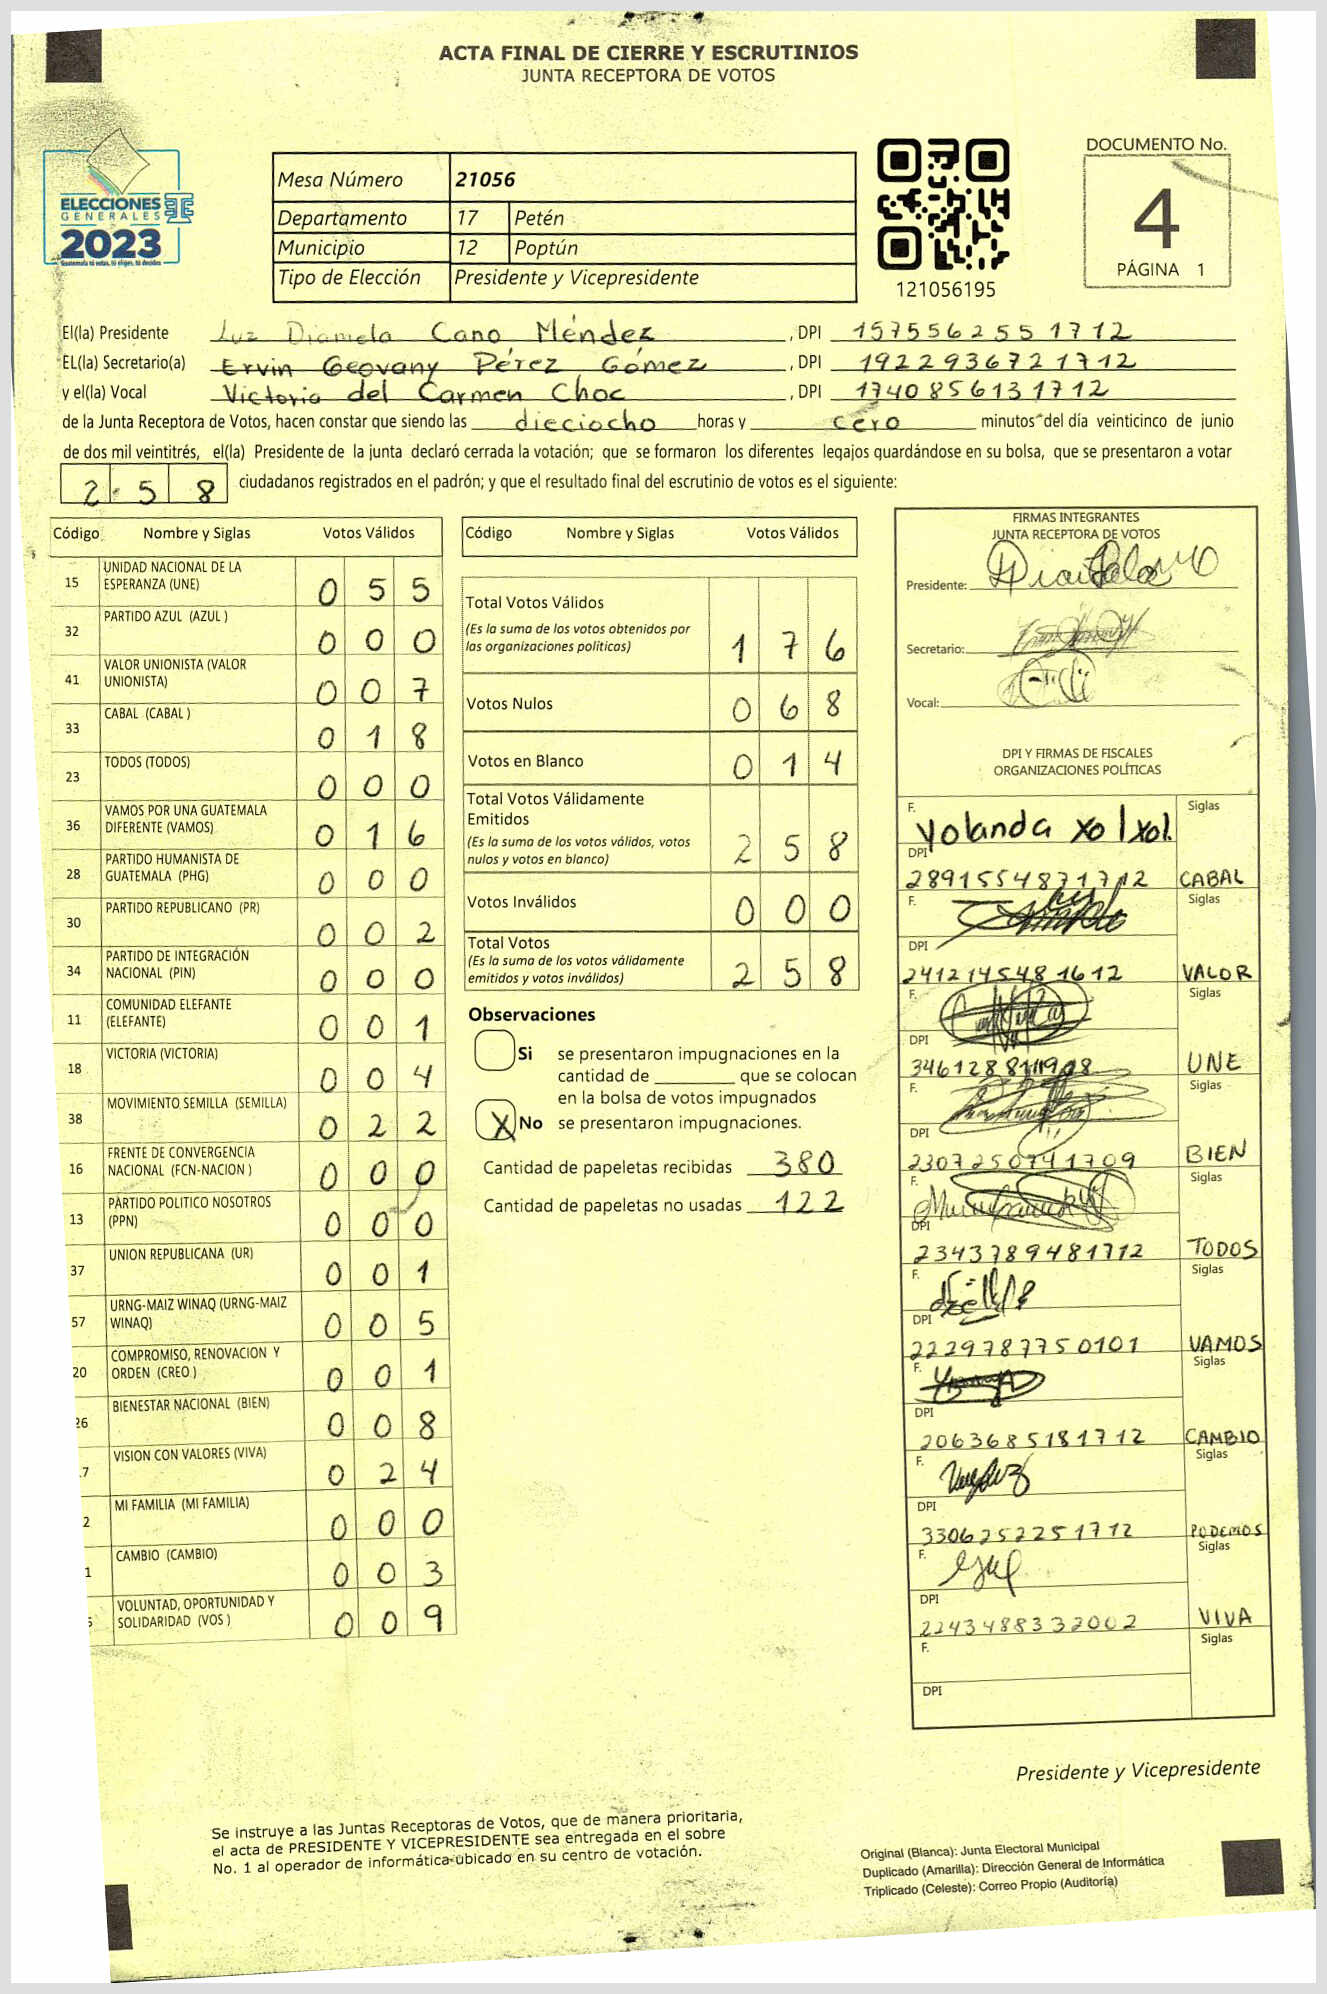 ACTA FINAL DE CIERRE Y ESCRUTINIOS
JUNTA RECEPTORA DE VOTOS
ELECCIONES
GENERALES
2023
Guatemala tú votas, tú eliges, tú decides
Mesa Número 21056
Departamento 17 Petén
Municipio 12 Poptún
Tipo de Elección Presidente y Vicepresidente
121056195
DOCUMENTO No.
4
PÁGINA 1
El(la) Presidente Luz Diamela Cano Méndez, DPI 1575562551712
EL(la) Secretario(a) Ervin Geovany Pérez Gómez, DPI 1922936721712
y el(la) Vocal Victoria del Carmen Choc, DPI 1740856131712
de la Junta Receptora de Votos, hacen constar que siendo las dieciocho horas y cero minutos del día veinticinco de junio
de dos mil veintitrés, el(la) Presidente de la junta declaró cerrada la votación; que se formaron los diferentes legajos guardándose en su bolsa, que se presentaron a votar
258 ciudadanos registrados en el padrón; y que el resultado final del escrutinio de votos es el siguiente:
Código Nombre y Siglas Votos Válidos
15 UNIDAD NACIONAL DE LA ESPERANZA (UNE) 055
32 PARTIDO AZUL (AZUL ) 000
41 VALOR UNIONISTA (VALOR UNIONISTA) 007
33 CABAL (CABAL ) 018
23 TODOS (TODOS) 000
36 VAMOS POR UNA GUATEMALA DIFERENTE (VAMOS) 016
28 PARTIDO HUMANISTA DE GUATEMALA (PHG) 000
30 PARTIDO REPUBLICANO (PR) 002
34 PARTIDO DE INTEGRACIÓN NACIONAL (PIN) 000
11 COMUNIDAD ELEFANTE (ELEFANTE) 001
18 VICTORIA (VICTORIA) 004
38 MOVIMIENTO SEMILLA (SEMILLA) 022
16 FRENTE DE CONVERGENCIA NACIONAL (FCN-NACION ) 000
13 PARTIDO POLITICO NOSOTROS (PPN) 000
37 UNION REPUBLICANA (UR) 001
57 URNG-MAIZ WINAQ (URNG-MAIZ WINAQ) 005
20 COMPROMISO, RENOVACION Y ORDEN (CREO ) 001
26 BIENESTAR NACIONAL (BIEN) 008
7 VISION CON VALORES (VIVA) 024
2 MI FAMILIA (MI FAMILIA) 000
1 CAMBIO (CAMBIO) 003
VOLUNTAD, OPORTUNIDAD Y SOLIDARIDAD (VOS ) 009
Código Nombre y Siglas Votos Válidos
Total Votos Válidos
(Es la suma de los votos obtenidos por
las organizaciones políticas) 176
Votos Nulos 068
Votos en Blanco 014
Total Votos Válidamente
Emitidos
(Es la suma de los votos válidos, votos
nulos y votos en blanco) 258
Votos Inválidos 000
Total Votos
(Es la suma de los votos válidamente
emitidos y votos inválidos) 258
Observaciones
Si se presentaron impugnaciones en la
cantidad de ________ que se colocan
en la bolsa de votos impugnados
X No se presentaron impugnaciones.
Cantidad de papeletas recibidas 380
Cantidad de papeletas no usadas 122
FIRMAS INTEGRANTES
JUNTA RECEPTORA DE VOTOS
Presidente:
Secretario:
Vocal:
DPI Y FIRMAS DE FISCALES
ORGANIZACIONES POLÍTICAS
F. Yolanda xol xol. Siglas
DPI
2891554871712 CABAL
F. Siglas
DPI
2412145481612 VALOR
F. Siglas
DPI
UNE
F. Siglas
DPI
2307250741709 BIEN
F. Siglas
DPI
2343789481712 TODOS
F. Siglas
DPI
2229787750101 VAMOS
F. Siglas
DPI
2063685181712 CAMBIO
F. Siglas
DPI
3306252251712 PODEMOS
F. Siglas
DPI
2243488332002 VIVA
F. Siglas
DPI
Presidente y Vicepresidente
Se instruye a las Juntas Receptoras de Votos, que de manera prioritaria,
el acta de PRESIDENTE Y VICEPRESIDENTE sea entregada en el sobre
No. 1 al operador de informática ubicado en su centro de votación.
Original (Blanca): Junta Electoral Municipal
Duplicado (Amarilla): Dirección General de Informática
Triplicado (Celeste): Correo Propio (Auditoría)